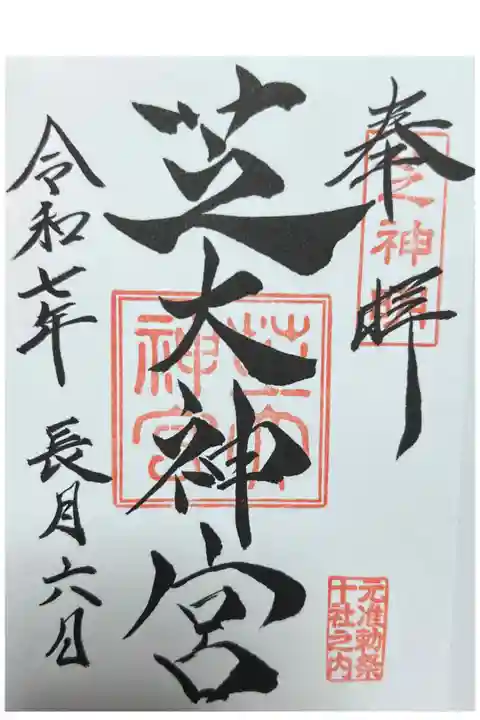 奉拝
芝大神宮
令和七年 長月六日
芝大神宮
元准勅祭
十社之内